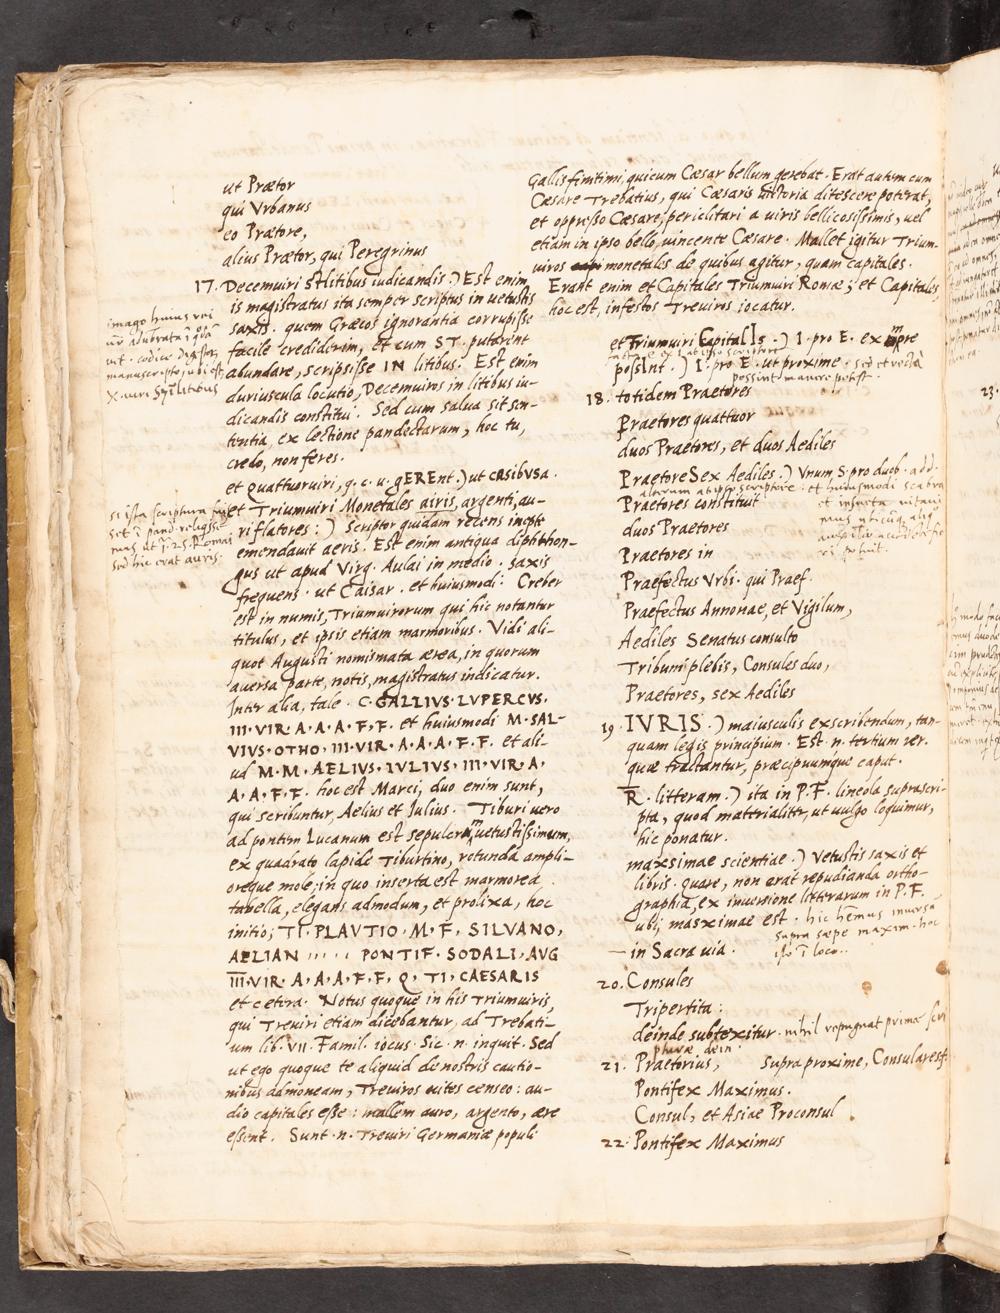 ut Prætor
qui Vrbanus
eo Prætore,
alius Prætor, qui Peregrinus
17. Decemuiri Stlitibus iudicandis.) Est enim
is magistratus ita semper scriptus in uetustis
saxis. quem Græcos ignorantia corrupisse
facile crediderim, et cum ST. putarent
abundare, scripsisse IN litibus. Est enim
duriuscula locutio, Decemuiros in litibus iu-
dicandis constitui. Sed cum salua sit sen-
tentia, ex lectione pandectarum, hoc tu,
credo, non feres.
et quattuoruiri, q. c. u. gERENt.) ut cAsibusA.
et Triumuiri Monetales airis, argenti, au-
ri flatores:) Scriptor quidam recens inepte
emendauit aeris. Est enim antiqua diphthon-
gus ut apud Virg. Aulai in medio. saxis
frequens. ut Caisar. et huiusmodi: Creber
est in numis, Triumuirorum qui hic notantur
titulus, et ipsis etiam marmoribus. Vidi ali-
quot Augusti nomismata ærea, in quorum
auersa parte, notis, magistratus indicatur.
Inter alia, tale. C. GALLIVS. LVPERCVS.
III. VIR. A. A. A. F. F. et huiusmodi M. SAL-
VIVS. OTHO, III. VIR. A. A. A. F. F. et ali-
ud M. M. AELIVS. IVLIVS. III. VIR. A.
A. A. F. F. hoc est Marci, duo enim sunt,
qui scribuntur, Aelius et Iulius. Tiburi uero
ad pontem Lucanum est sepulcrum uetustissimum,
ex quadrato lapide Tiburtino, rotunda ampli-
oreque mole, in quo inserta est marmorea
tabella, elegans admodum, et prolixa, hoc
initio; TI. PLAVTIO. M. F. SILVANO,
AELIAN ..... PONTIF. SODALI. AVG
III. VIR. A. A. A. F. F. Q. TI. CAESARIS
et cetera. Notus quoque in his Triumuiris,
qui Treuiri etiam dicebantur, ad Trebati-
um lib. VII. Famil. iocus. Sic. n. inquit. Sed
ut ego quoque te aliquid de nostris cautio-
nibus admoneam, Treuiros uites censeo: au-
dio capitales esse: mallem auro, argento, ære
essent. Sunt. n. Treuiri Germaniæ populi
imago huius rei
manuscripto
X. uiri STlitibus
si ista scriptura
sed hic erat auris.
Gallis finitimi, quicum Cæsar bellum gerebat. Erat autem cum
Cæsare Trebatius, qui Cæsaris uictoria ditescere poterat,
et oppresso Cæsare, periclitari a uiris bellicosissimis, uel
etiam in ipso bello, uincente Cæsare. Mallet igitur Trium-
uiros monetales de quibus agitur, quam capitales.
Erant enim et Capitales Triumuiri Romæ; et Capitales,
hoc est, infestos Treuiros iocatur.
et Triumuiri CapitalIs.) I. pro E.
possInt.) I. pro E. ut proxime. sed et recta
possint manere potest.
18. totidem Praetores
Praetores quattuor
duos Praetores, et duos Aediles
PraetoreSex Aediles.) Vnum S. pro duob. add.
alterum ab ipso scriptore: et huiusmodi scabra
Praetores constituit
duos Praetores
Praetores in
Praefectus Vrbi. qui Praef.
Praefectus Annonae, et Vigilum,
Aediles Senatus consulto
Tribuni plebis, Consules duo,
Praetores, sex Aediles
19. IVRIS.) maiusculis exscribendum, tan-
quam legis principium. Est. n. tertium rer.
quae tractantur, præcipuumque caput.
R. litteram.) ita in P. F. lineola suprascri-
pta, quod materialiter, ut uulgo loquimur,
hic ponatur.
maxsimae scientiae.) Vetustis saxis et
libris. quare, non erat repudianda ortho-
graphia, ex inuersione litterarum in P. F.
ubi, masximae est. hic hemus inuersa
supra sæpe maxim. hoc
in Sacra uia.
20. Consules
Tripertita:
deinde subtexitur. nihil repugnat primæ
21. Praetorius, Supra proxime, Consulares
Pontifex Maximus.
Consul, et Asiae Proconsul
22. Pontifex Maximus
23.